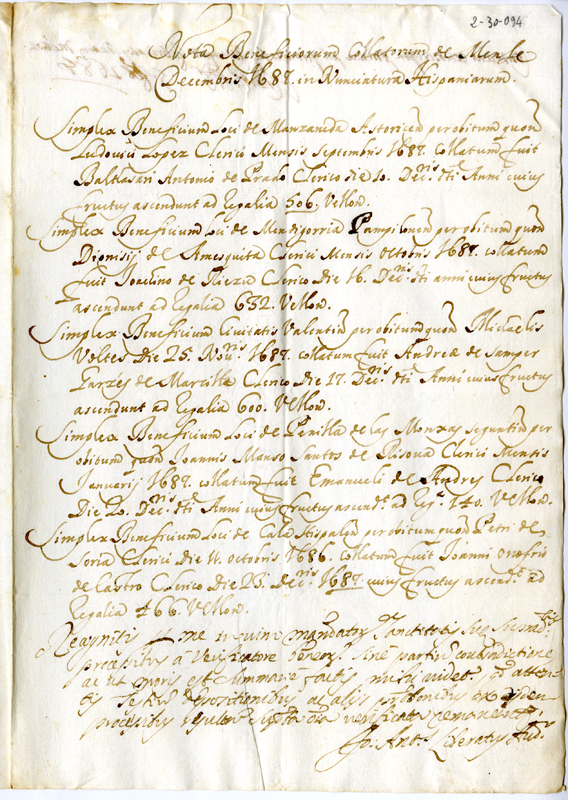 2-30-094
Nota Beneficiorum Collatorum de Mense
Decembris 1687. in Nunciatura Hispaniarum.
Simplex Beneficium Loci de Manzaneda Astoricen per obitum quon
Ludovici Lopez Clerici Mensis septembris 1687. Collatum fuit
Balthasari Antonio de Prado Clerico die 10. Decris dti Anni cuius
fructus ascendunt ad Regalia 506. Vellon.
Simplex Beneficium Loci de Mendigorria Pampilonen per obitum quon
Dionisij de Amesquita Clerici Mensis octobris 1687. collatum
fuit Joachino de Clerico Die 16. Decris dti anni cuius fructus
ascendunt ad Regalia 632. Vellon.
Simplex Beneficium Civitatis Valentin per obitum quon Michaelis
Voltes Die 25. Novris 1687. collatum fuit Andreæ de Samper
Garzes de Marzilla Clerico die 17. Decris dti Anni cuius fructus
ascendunt ad Regalia 600. Vellon.
Simplex Beneficium Loci de Penilla de las Monxas seguntin per
obitum quon Joannis Manso Santos de Clerici Mensis
Januarij 1687. collatum fuit Emanueli de Andres Clerico
Die 20. Decris dti Anni cuius fructus ascendt ad Rega 140. Vellon.
Simplex Beneficium Loci de Cala Hispalen per obitum quon Petri de
Soria Clerici die 11. octobris 1686. Collatum fuit Joanni onofrio
de Castro Clerico Die 23. Decris 1687. cuius fructus ascendt ad
Regalia 166. Vellon.
me mandatis sanctitatis suæ
processibus a Verificatore sine partis contradictione
ac ut moris est summarie factis mihi videtur
testium depositionibus ac alijs ex eisdem
processibus verificata remanere
Jo. Ants Liberatus Audr